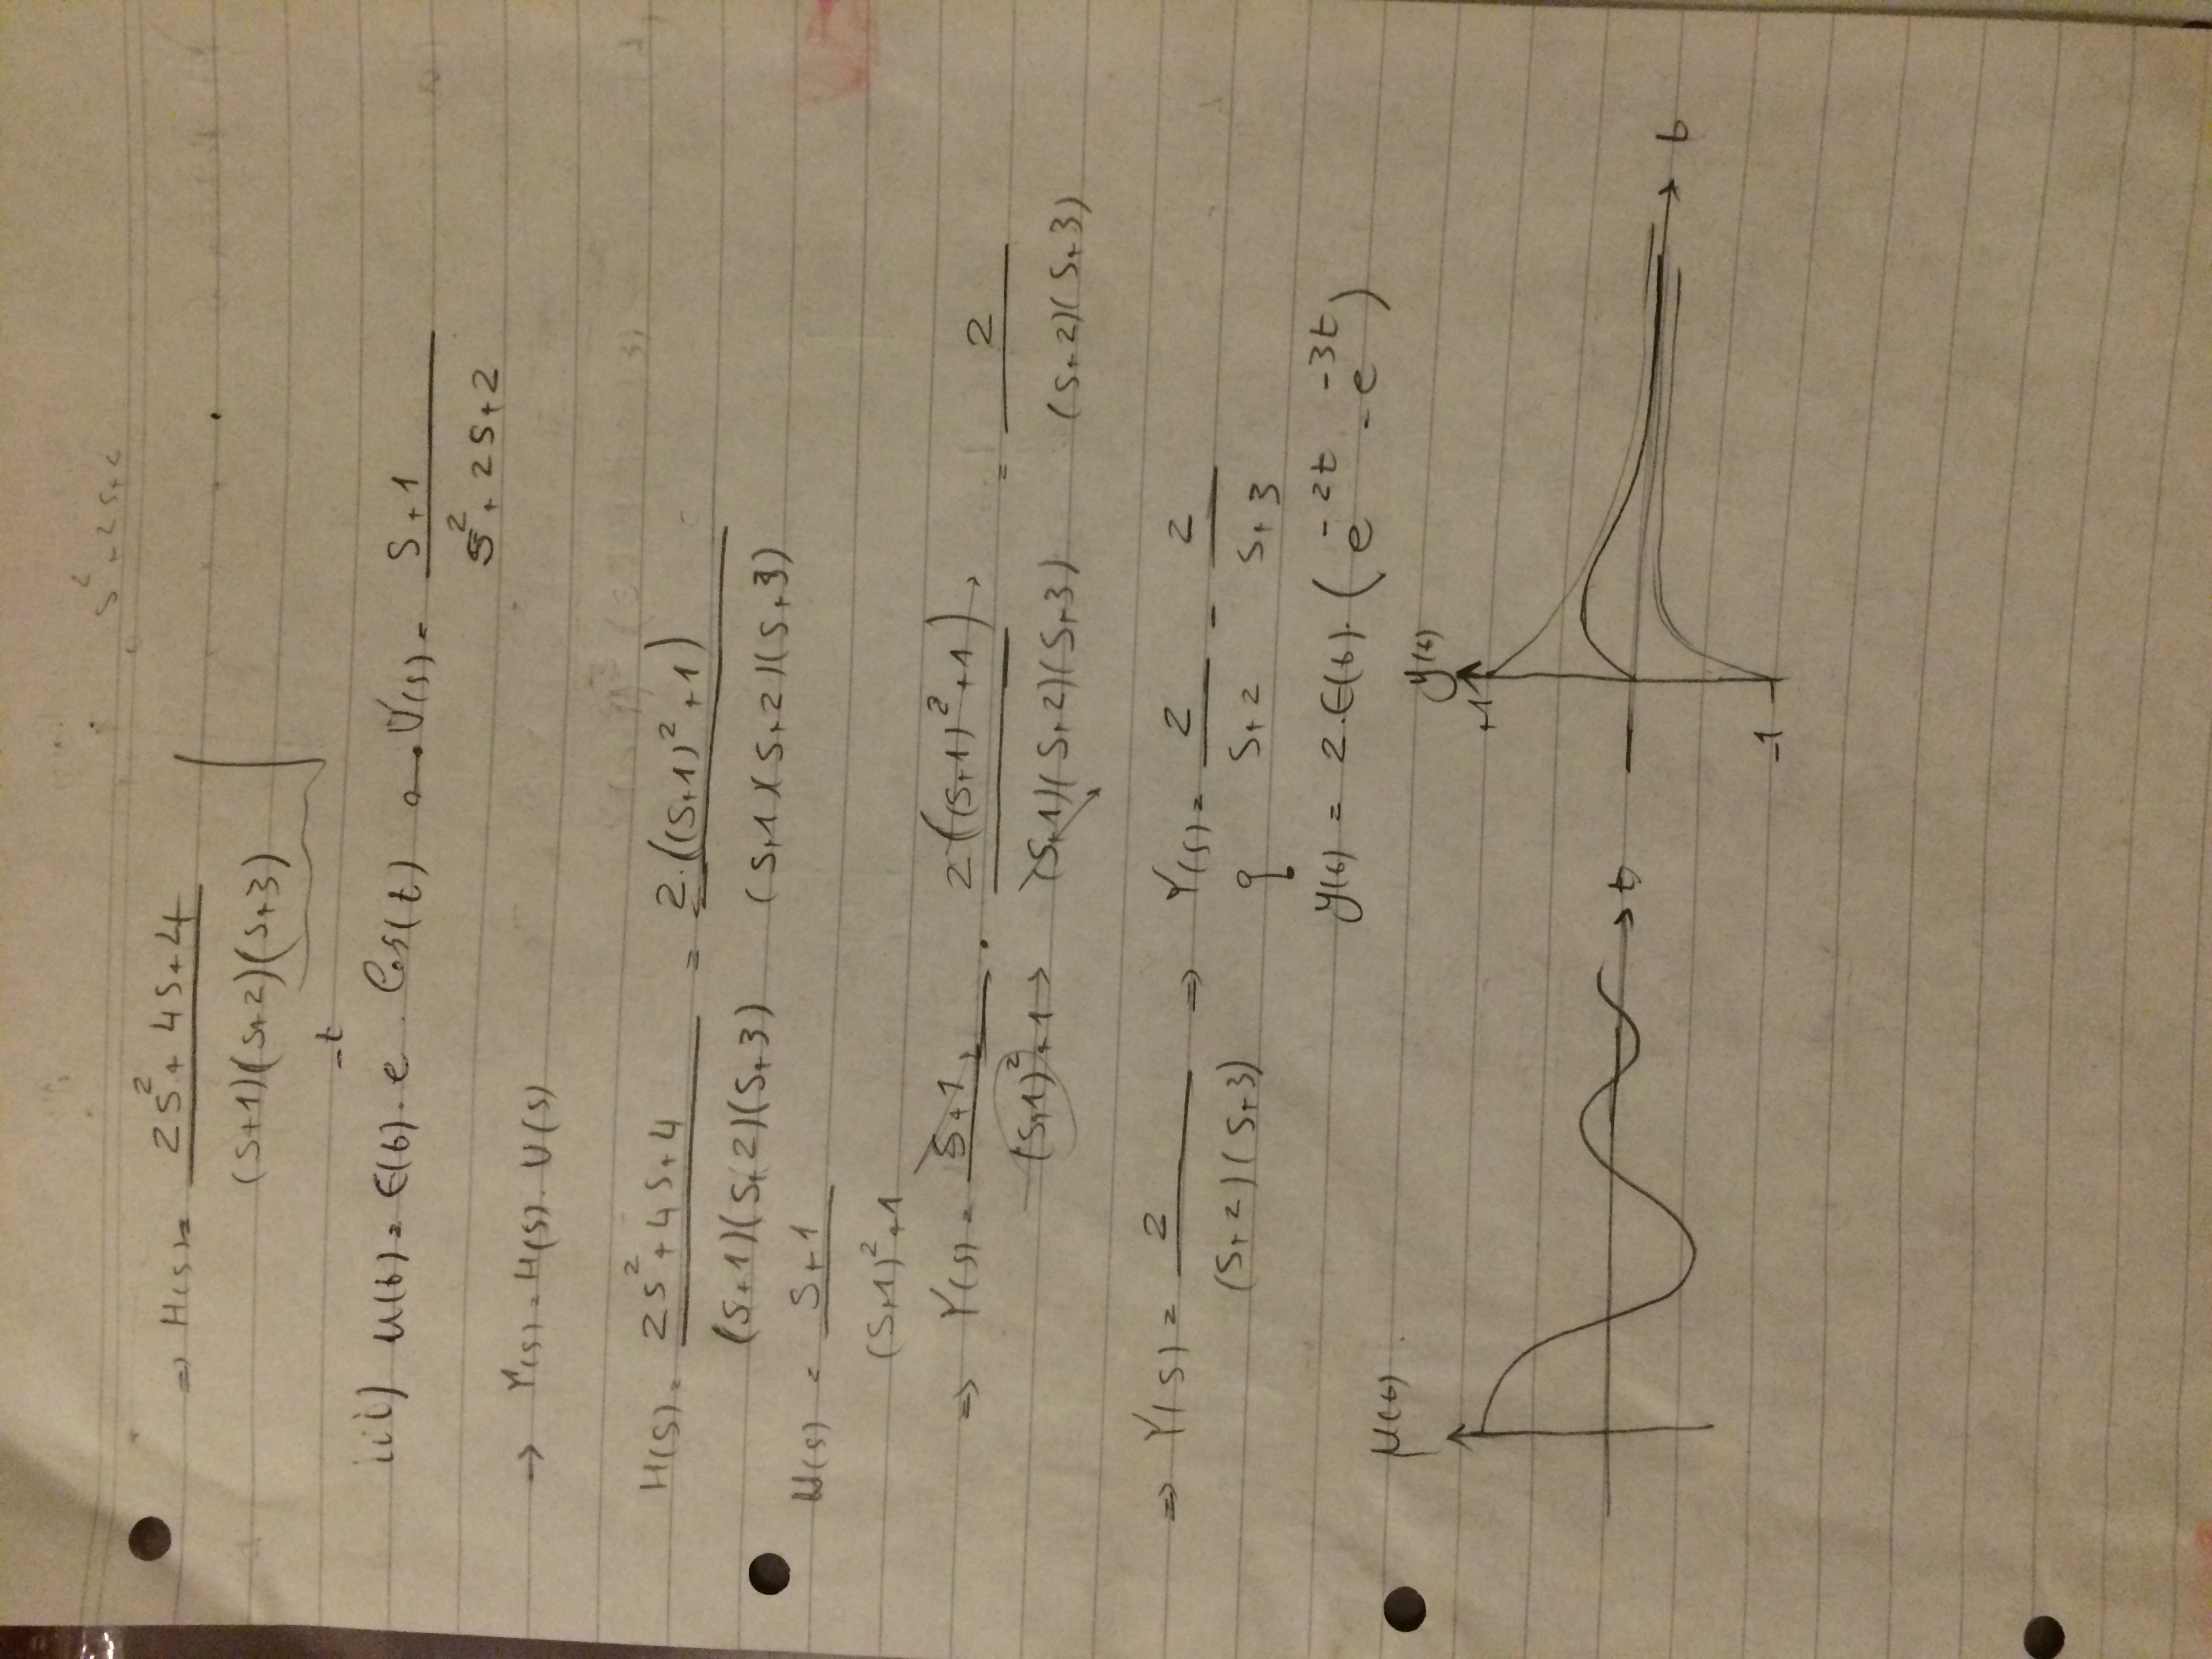 s²+2s+2
⇒ H(s)= (2s²+4s+4)/((s+1)(s+2)(s+3))
iii) u(t)= ϵ(t)·e^(-t)·Cos(t) ○—● U(s)= (s+1)/(s²+2s+2)
→ Y(s)=H(s)·U(s)
H(s)= (2s²+4s+4)/((s+1)(s+2)(s+3)) = (2·((s+1)²+1))/((s+1)(s+2)(s+3))
U(s) = (s+1)/((s+1)²+1)
⇒ Y(s)= (s+1)/((s+1)²+1) · (2((s+1)²+1))/((s+1)(s+2)(s+3)) = 2/((s+2)(s+3))
⇒ Y(s)= 2/((s+2)(s+3)) ⇒ Y(s)= 2/(s+2) - 2/(s+3)
y(t) = 2·ϵ(t)·(e^(-2t) - e^(-3t))
u(t)
y(t)
+1
t
t
-1